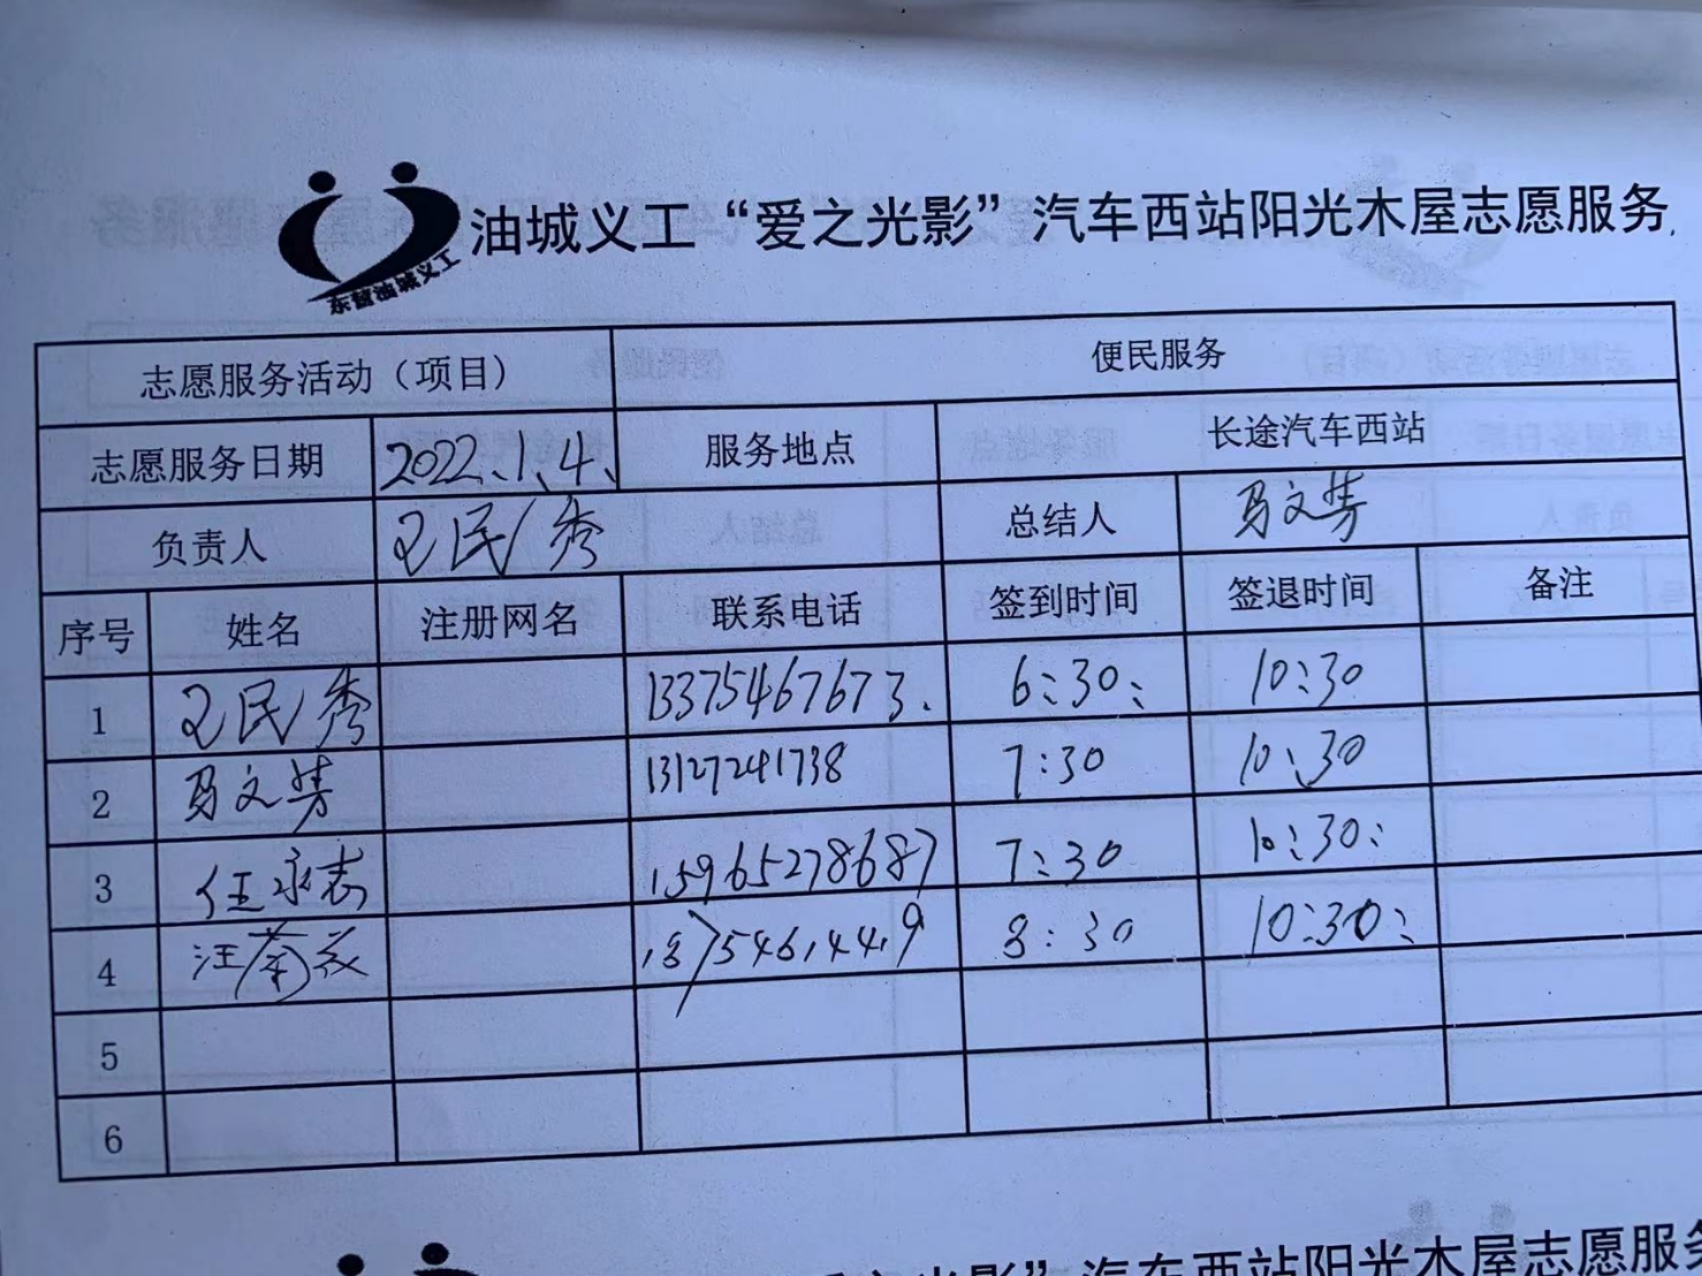 油城义工“爱之光影”汽车西站阳光木屋志愿服务
东营油城义工
志愿服务活动（项目） 便民服务
志愿服务日期 2022、1、4、 服务地点 长途汽车西站
负责人 王民秀 总结人 马文芳
序号 姓名 注册网名 联系电话 签到时间 签退时间 备注
1 王民秀 13375467673. 6:30: 10:30
2 马文芳 13127241738 7:30 10:30
3 任永志 15965278687 7:30 10:30:
4 汪 18754614419 8:30 10:30:
5
6
影”汽车西站阳光木屋志愿服务